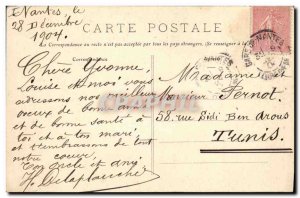 Nantes, le
28 Décembre
1904.
CARTE POSTALE
La Correspondance au recto n'est pas acceptée par tous les pays étrangers. (Se renseigner à
Correspondance
Chère Yvonne,
Louise et moi vous
adressons nos meilleurs
voeux de bonne année
et de bonne santé à
toi et à ton mari,
et t'embrassons de tout
notre coeur.
Ton oncle et ami,
Madame et
Monsieur Pernot.
58, rue Sidi Ben Arous
Tunis.